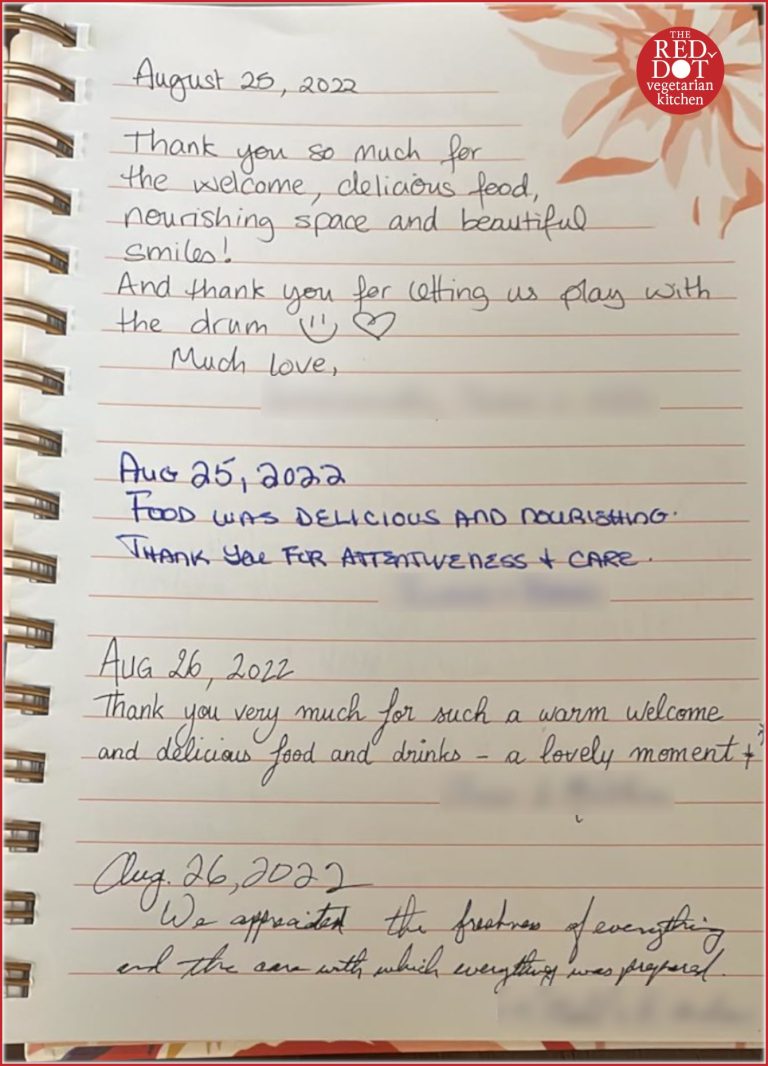 THE
RED
DOT
vegetarian
kitchen
August 25, 2022
Thank you so much for
the welcome, delicious food,
nourishing space and beautiful
smiles!
And thank you for letting us play with
the drum
Much love,
Aug 25, 2022
FOOD WAS DELICIOUS AND NOURISHING.
THANK YOU FOR ATTENTIVENESS + CARE.
AUG 26, 2022
Thank you very much for such a warm welcome
and delicious food and drinks - a lovely moment
Aug. 26, 2022
We appreciated the freshness of everything
and the care with which everything was prepared.